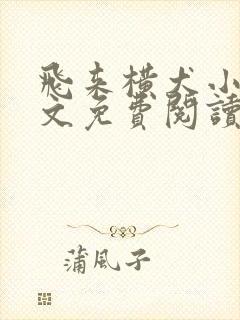 飛来橫犬小
文免費閱讀
蒲風子